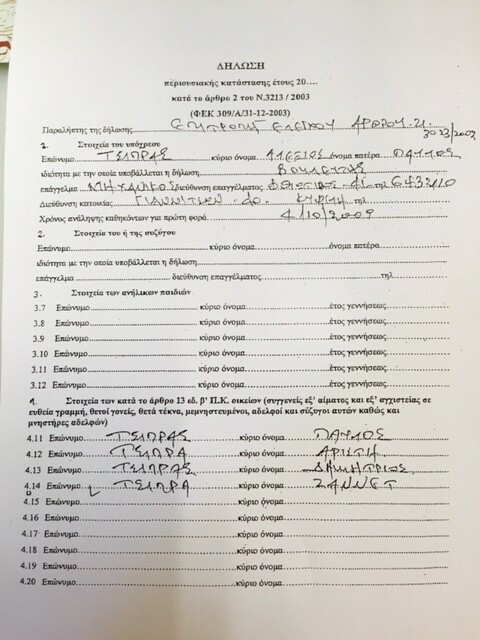 ΔΗΛΩΣΗ
περιουσιακής κατάστασης έτους 20....
κατά το άρθρο 2 του Ν.3213 / 2003
(ΦΕΚ 309/Α/31-12-2003)
Παραλήπτης της δήλωσης ΕΠΙΤΡΟΠΗ ΕΛΕΓΧΟΥ ΑΡΘΡΟΥ 21
3023/2002
1. Στοιχεία του υπόχρεου
Επώνυμο ΤΣΙΠΡΑΣ κύριο όνομα ΑΛΕΞΙΟΣ όνομα πατέρα ΠΑΥΛΟΣ
ιδιότητα με την οποία υποβάλλεται η δήλωση ΒΟΥΛΕΥΤΗΣ
επάγγελμα ΜΗΧΑΝΙΚΟΣ διεύθυνση επαγγέλματος τηλ
Διεύθυνση κατοικίας ΚΥΨΕΛΗ τηλ
Χρόνος ανάληψης καθηκόντων για πρώτη φορά 4/10/2009
2. Στοιχεία του ή της συζύγου
Επώνυμο κύριο όνομα όνομα πατέρα
ιδιότητα με την οποία υποβάλλεται η δήλωση
επάγγελμα διεύθυνση επαγγέλματος τηλ
3. Στοιχεία των ανήλικων παιδιών
3.7 Επώνυμο κύριο όνομα έτος γεννήσεως
3.8 Επώνυμο κύριο όνομα έτος γεννήσεως
3.9 Επώνυμο κύριο όνομα έτος γεννήσεως
3.10 Επώνυμο κύριο όνομα έτος γεννήσεως
3.11 Επώνυμο κύριο όνομα έτος γεννήσεως
3.12 Επώνυμο κύριο όνομα έτος γεννήσεως
4. Στοιχεία των κατά το άρθρο 13 εδ. β' Π.Κ. οικείων (συγγενείς εξ' αίματος και εξ' αγχιστείας σε
ευθεία γραμμή, θετοί γονείς, θετά τέκνα, μεμνηστευμένοι, αδελφοί και σύζυγοι αυτών καθώς και
μνηστήρες αδελφών)
4.11 Επώνυμο ΤΣΙΠΡΑΣ κύριο όνομα ΠΑΥΛΟΣ
4.12 Επώνυμο ΤΣΙΠΡΑ κύριο όνομα ΑΡΙΣΤΗ
4.13 Επώνυμο ΤΣΙΠΡΑΣ κύριο όνομα ΔΗΜΗΤΡΙΟΣ
4.14 Επώνυμο ΤΣΙΠΡΑ κύριο όνομα ΖΑΝΝΕΤ
4.15 Επώνυμο κύριο όνομα
4.16 Επώνυμο κύριο όνομα
4.17 Επώνυμο κύριο όνομα
4.18 Επώνυμο κύριο όνομα
4.19 Επώνυμο κύριο όνομα
4.20 Επώνυμο κύριο όνομα